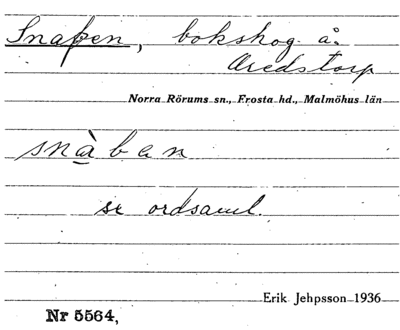 Snapen, bokskog å
Aredstorp
Norra Rörums sn., Frosta hd., Malmöhus län
snàban
se ordsaml.
Erik Jehpsson 1936
Nr 5564,